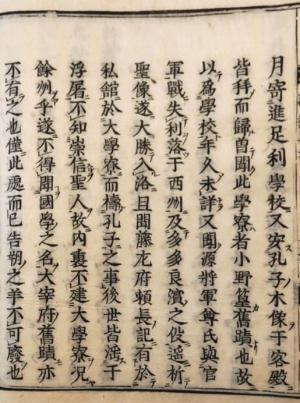 月寄進足利學校又安孔子木像于客殿
皆拜而歸曽聞此學寮者小野篁舊蹟也故
以爲學校年久未詳又聞源將軍尊氏與官
軍戰失利落于西州及多多良濵之伇遥祈
聖像遂大勝入洛且聞藤左府頼長記有於
私館於大學寮而禱孔子之事後世皆淫于
浮屠不知崇信聖人故内裏不建大學寮况
餘州乎遂不得聞國學之名大宰府舊蹟亦
不有之也僅此處而已告朔之羊不可廢也